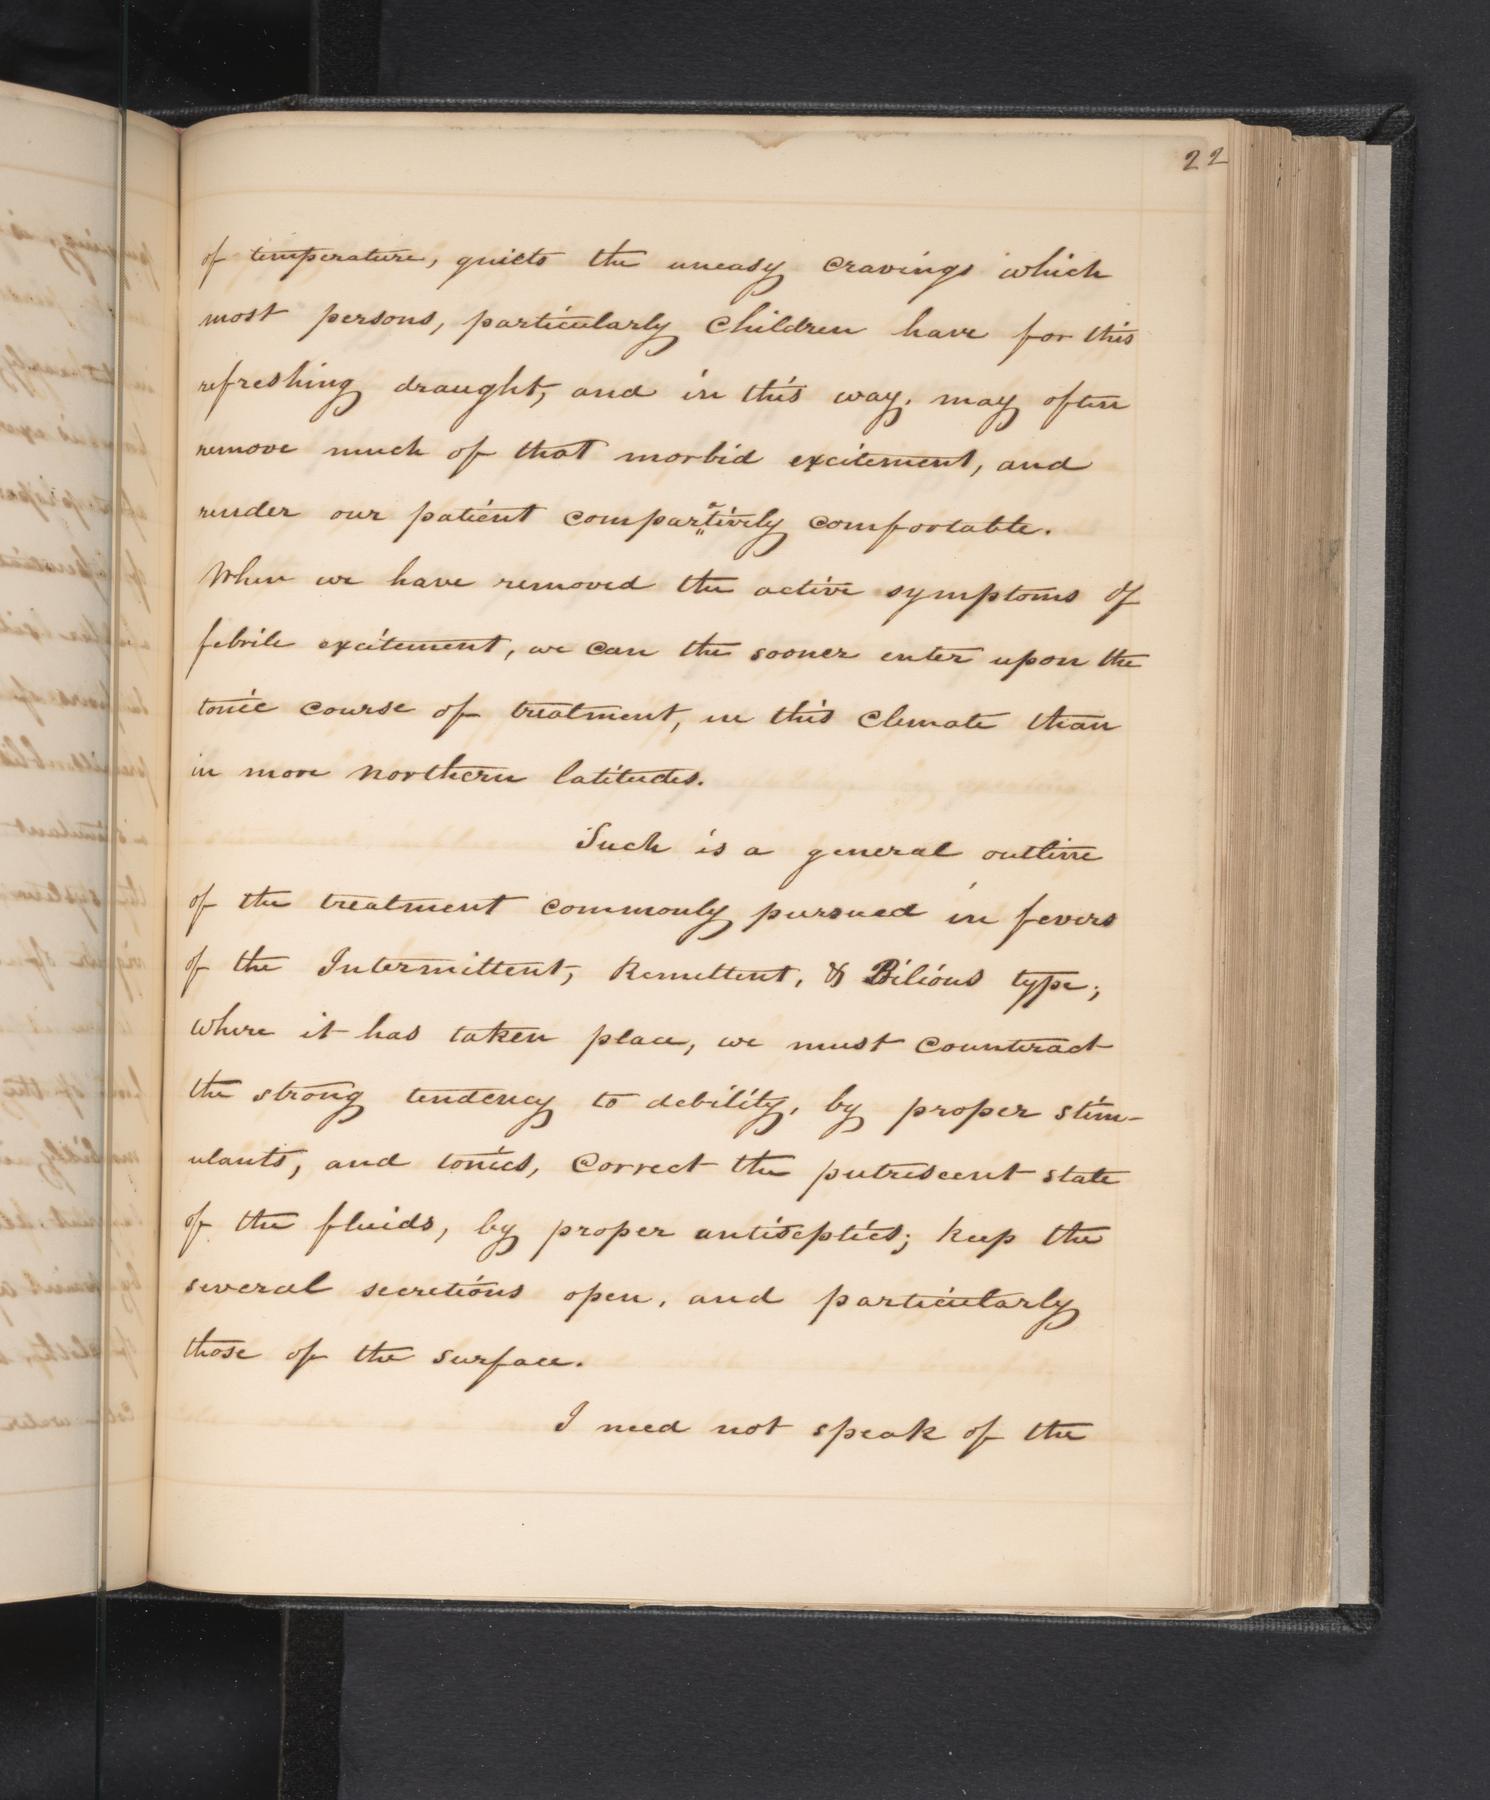 22
of temperature, quiets the uneasy cravings which
most persons, particularly children have for this
refreshing draught, and in this way, may often
remove much of that morbid excitement, and
render our patient comparatively comfortable.
When we have removed the active symptoms of
febrile excitement, we can the sooner enter upon the
tonic course of treatment, in this climate than
in more northern latitudes.
Such is a general outline
of the treatment commonly pursued in fevers
of the Intermittent, Remittent, & Bilious type;
where it has taken place, we must counteract
the strong tendency to debility, by proper stim-
ulants, and tonics, correct the putrescent state
of the fluids, by proper antiseptics; keep the
several secretions open, and particularly
those of the surface.
I need not speak of the